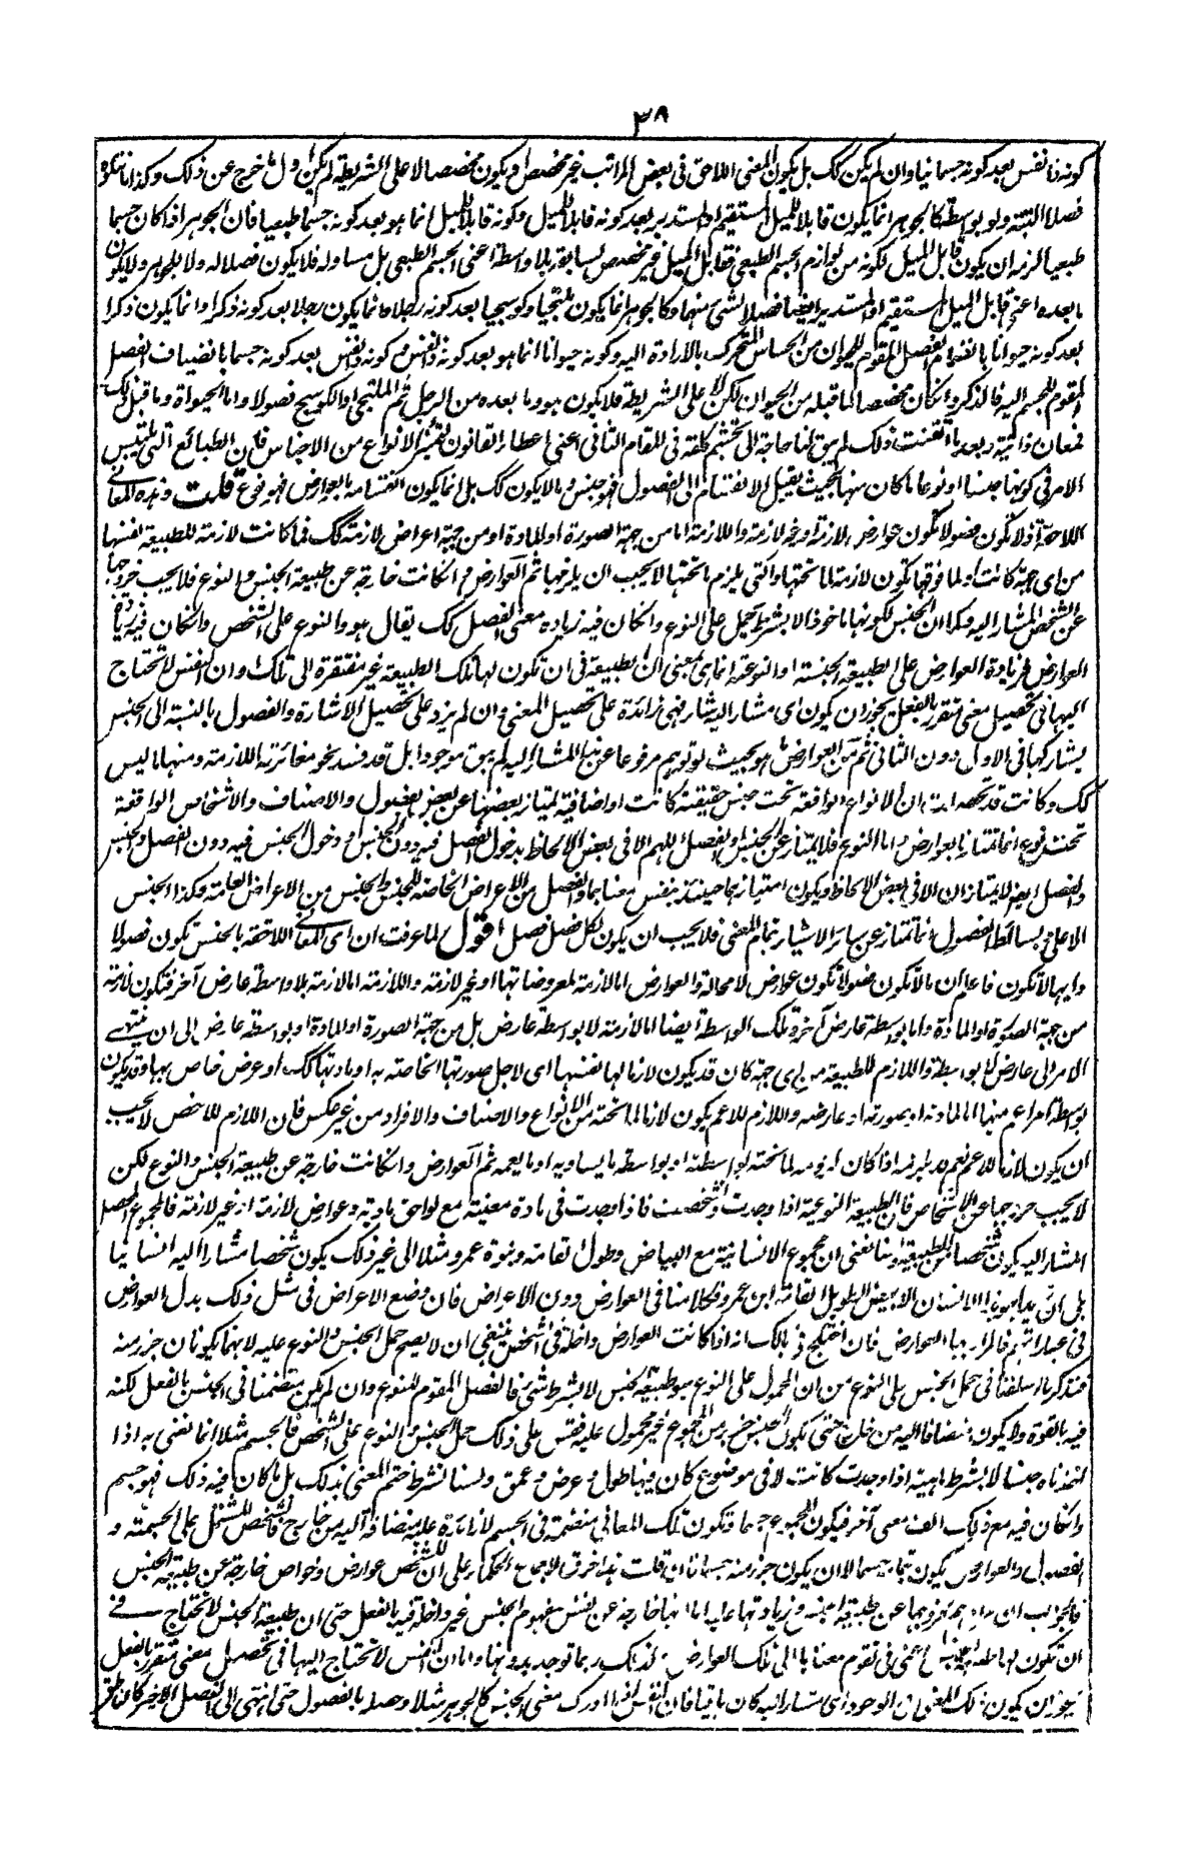 ٣٨
كونه ذا نفس بعد كونه جسمانيا وان لم يكن كك بل يكون المعنى اللاحق فى بعض المراتب غير مخصص او يكون مخصصا لا على الشريطة لم يكن خرج عن ذلك وكذا
فصلا البتة ولو بواسطة كالجوهر انما يكون قابلا للميل المستقيم او المستدير بعد كونه قابلا للميل وكونه قابلا للميل انما هو بعد كونه جسما طبعيا فان الجوهر اذا كان جسما
طبعيا لزمه ان يكون قابل الميل لكونه من لوازم الجسم الطبعى فقابل الميل غير مخصص لسابقه بلا واسطة اعنى الجسم الطبعى بل مساو له فلا يكون فصلا له ولا للجوهر ولا يكون
ما بعده اعنى قابل الميل المستقيم او المستدير ايضا فصلا لشئ منهما وكالجوهر انما يكون ملتحيا وكوسجيا بعد كونه رجلا وانما يكون رجلا بعد كونه ذكرا وانما يكون ذكرا
بعد كونه حيوانا بانضمام الفصل المقوم للحيوان من الحساس المتحرك بالارادة اليه وكونه حيوانا انما هو بعد كونه ذا نفس وكونه ذا نفس بعد كونه جسما بانضياف الفصل
المقوم للجسم اليه فالذكر وان كان مخصصا لما قبله من الحيوان لكن لا على الشريطة فلا يكون هو وما بعده من الرجل ثم الملتحى او الكوسج فصولا واما الحيواة وما قبل ذلك
فمعان ذاتية وبعد ما اتقنت ذلك لم يبق لنا حاجة الى تجشم كلفة فى المقام الثانى اعنى اعطاء القانون لتميز الانواع من الاجناس فان الطبائع التى يلتبس
الامر فى كونها جنسا او نوعا ما كان منها بحيث يقبل الانقسام الى الفصول فهو جنس وما لا يكون كك بل انما يكون انقسامه بالعوارض فهو نوع قلت وهذه المعانى
اللاحقة اذ لا تكون فصولا تكون عوارض لازمة او غير لازمة واللازمة اما من جهة الصورة او المادة او من جهة اعراض لازمة كك فما كانت لازمة للطبيعة نفسها
من اى جهة كانت او لما فوقها تكون لازمة لما تحتها والتى يلزم ما تحتها لا يجب ان يلزمها ثم العوارض وان كانت خارجة عن طبيعة الجنس والنوع فلا يجب خروجها
عن الشخص المشار اليه وكما ان الجنس لكونها ماخوذا لا بشرط يحمل على النوع وان كان فيه زيادة معنى الفصل كك يقال هو والنوع على الشخص وان كان فيه زيادة
العوارض فزيادة العوارض على الطبيعة الجنسية او النوعية انما هى بمعنى ان الطبيعة فى ان تكون لها تلك الطبيعة غير مفتقرة الى تلك وان النفس لا تحتاج
اليها فى تحصيل معنى متقرر بالفعل يجوز ان يكون اى مشار اليه شار فهى زائدة على تحصيل المعنى وان لم يزد على تحصيل الاشارة والفصول بالنسبة الى الجنس
يشاركها فى الاول دون الثانى ثم من العوارض ما هو بحيث لو توهم مرفوعا عن المشار اليه لم يبق موجودا بل قد فسد نحو مغائرته اللازمة ومنها ما ليس
كك وكانت قد تحصلت ان الانواع الواقعة تحت جنس حقيقية كانت او اضافية يمتاز بعضها عن بعض بفصول والاصناف والاشخاص الواقعة
تحت نوع انما تمتاز بالعوارض واما النوع فلا يمتاز عن الجنس او الفصل اللهم الا فى بعض الالحاظ بدخول الفصل فيه دون الجنس او دخول الجنس فيه دون الفصل والجنس
والفصل ايضا لا يمتازان الا فى بعض الالحاظ ويكون امتيازهما حينئذ بنفس معناهما والفصل من الاعراض الخاصة للجنس والجنس من الاعراض العامة وهكذا الجنس
الاعلى وبسائط الفصول انما تمتاز عن سائر الاشياء بتمام المعنى فلا يجب ان يكون لكل فصل فصل اقول لما عرفت ان اى المعانى اللاحقة بالجنس تكون فصولا
وايها لا تكون فاعلم ان ما لا تكون فصولا تكون عوارض لا محالة والعوارض اما لازمة لمعروضاتها او غير لازمة واللازمة اما لازمة بلا واسطة عارض آخر فتكون لازمة
من جهة الصورة او المادة واما بواسطة عارض آخر وتلك الواسطة ايضا اما لازمة لا بواسطة عارض بل من جهة الصورة او المادة او بواسطة عارض الى ان ينتهى
الامر الى عارض لا بواسطة واللازم للطبيعة من اى جهة كان قد يكون لازما لها نفسها اى لاجل صورتها الخاصة به او مادتها كك او عرض خاص بها وقد يكون
بواسطة امر اعم منها اما لمادته او بصورته او عارضه واللازم للاعم يكون لازما لما تحته من الانواع والاصناف والافراد من غير عكس فان اللازم للاخص لا يجب
ان يكون لازما للاعم نعم قد يلزمه اذا كان لزومه لما تحته بواسطته او بواسطة ما يساويه او ما يعمه ثم العوارض وان كانت خارجة عن طبيعة الجنس والنوع لكن
لا يجب خروجها عن الاشخاص فان الطبيعة النوعية اذا وجدت وتشخصت فاذا وجدت فى مادة معينة مع لواحق مادية وعوارض لازمة او غير لازمة فالمجموع الحاصل
المشار اليه يكون شخصا من الطبيعة وانما نعنى ان مجموع الانسانية مع البياض وطول القامة وبنوة عمرو مثلا الى غير ذلك يكون شخصا مشارا اليه انسانيا
بل ان زيدا هو هذا الانسان الابيض الطويل القامة ابن عمرو وكلامنا فى العوارض دون الاعراض فان وضع الاعراض فى مثل ذلك بدل العوارض
فى عباراتهم فالمراد بها العوارض فان اختلج فى بالك انه اذا كانت العوارض داخلة فى الشخص فينبغى ان لا يصح حمل الجنس والنوع عليه لانهما يكونان جزء منه
فتذكر ما اسلفنا فى حمل الجنس على النوع من ان المحمول على النوع هو طبيعة الجنس لا بشرط شئ فالفصل المقوم للنوع وان لم يكن متضمنا فى الجنس بالفعل لكنه
فيه بالقوة ولا يكون منضافا اليه من خارج حتى يكون الجنس جزء من المجموع غير محمول عليه فقس على ذلك حمل الجنس والنوع على الشخص فالجسم مثلا انما نعنى به اذا
اخذناه جنسا لا بشرط ماهية اذا وجدت كانت لا فى موضوع كان فيها طول وعرض وعمق ولسنا نشرط ختم المعنى بذلك بل ما كان فيه ذلك فهو جسم
وان كان فيه مع ذلك الف معنى آخر فيكون المجموع جسما وتكون تلك المعانى منضمة فى الجسم لا زائدة عليه منضافة اليه من خارج فالشخص المشتمل على الجسمية و
الفصول والعوارض يكون بتمامه جسما لا ان يكون جزء منه جسما فان قلت هذا خرق لاجماع الحكماء على ان للشخص عوارض وخواص خارجة عن طبيعة الجنس
فالجواب ان مرادهم بخروجها عن طبيعة الجنس وزيادتها عليه اما انها خارجة عن نفس مفهوم الجنس غير داخلة فيه بالفعل حتى ان طبيعة الجنس لا تحتاج فى
ان تكون لها طبيعة الجنس اعنى فى تقوم معناها الى تلك العوارض ولذلك ربما توجد بدونها واما ان النفس لا تحتاج اليها فى تحصيل معنى متقرر بالفعل
يجوز ان يكون ذلك المعنى فى الوجود اى مشار اليه كان باقيا فان النفس اذا ادرك معنى الجنس كالجوهر مثلا وحصله بالفصول حتى انتهى الى الفصل الاخير كالناطق